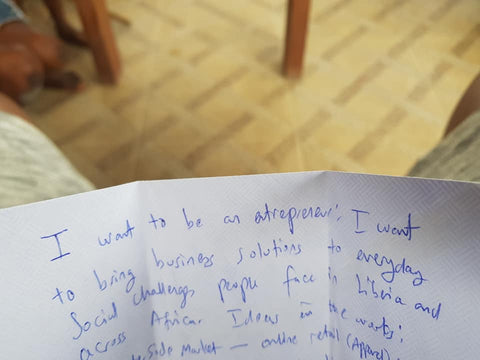 I want to be an entrepreneur. I want
to bring business solutions to everyday
Social challenges people face in Liberia and
across Africa. Ideas in the works:
side Market — online retail (Apparel)